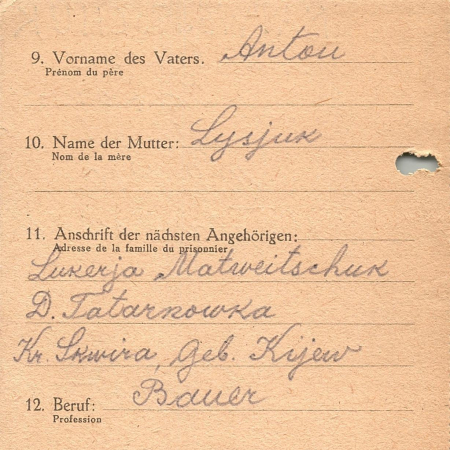 9. Vorname des Vaters. Anton
Prénom du père
10. Name der Mutter: Lysjuk
Nom de la mère
11. Anschrift der nächsten Angehörigen:
Adresse de la famille du prisonnier
Lukerja Matweitschuk
D. Tatarnowka
Kr. Skwira, Geb. Kijew
12. Beruf: Bauer
Profession